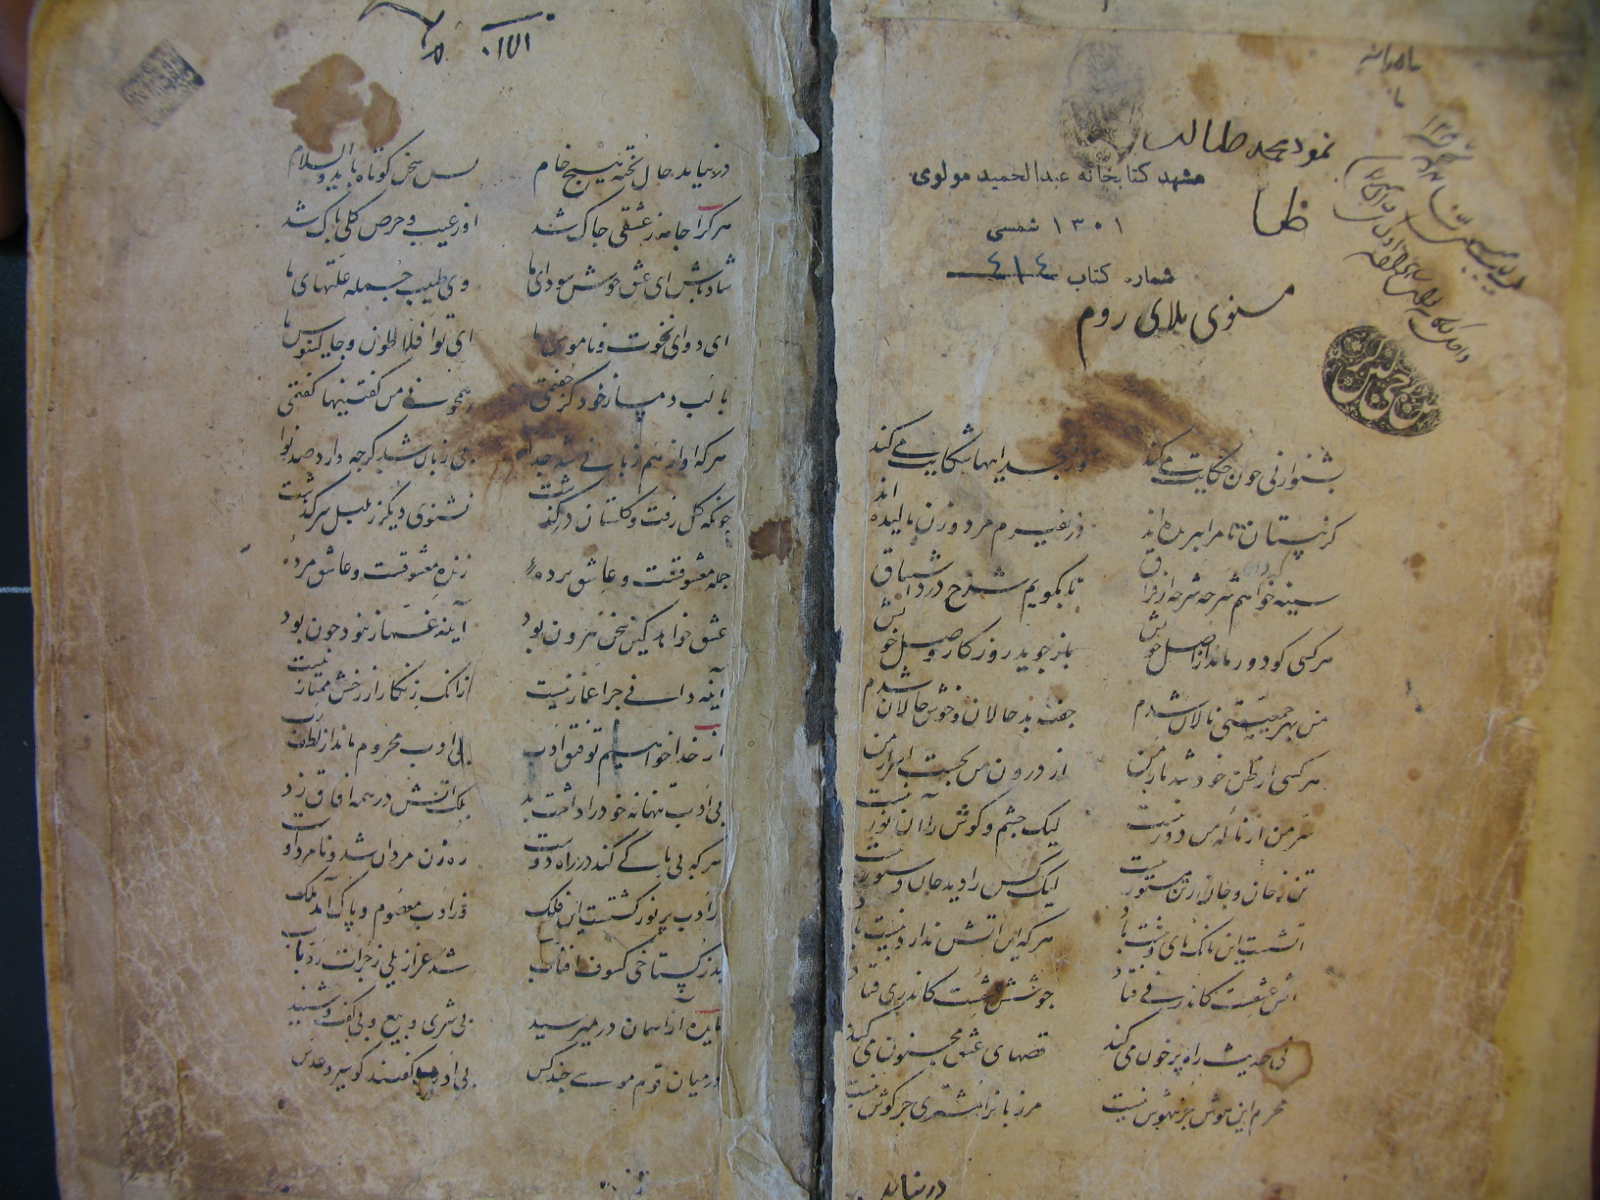 نمود محمد طالب
مشهد کتابخانه عبدالحمید مولوی
۱۳۰۱ شمسی
شماره کتاب ٤١٤
مسنوی بلای روم
بشنو از نی جون حکایت می کند
وز جداییها شکایت می کند
کز نیستان تا مرا ببریده اند
در نفیرم مرد و زن نالیده اند
سینه خواهم شرحه شرحه از فراق
تا بکویم شرح درد اشتیاق
هر کسی کو دور ماند از اصل خویش
باز جوید روزکار وصل خویش
من بهر جمعیتی نالان شدم
جفت بد حالان و خوش حالان شدم
هر کسی از ظن خود شد یار من
از درون من نجست اسرار من
سر من از ناله من دور نیست
لیک جشم و کوش را آن نور نیست
تن ز جان و جان ز تن مستور نیست
لیک کس را دید جان دستور نیست
اتشست این بانک نای و نیست باد
هر که این اتش ندارد نیست باد
اتش عشقست کاندر نی فتاد
جوشش عشقست کاندر می فتاد
نی حدیث راه پر خون می کند
قصهای عشق مجنون می کند
محرم این هوش جز بیهوش نیست
مر زبانرا مشتری جز کوش نیست
در نیابد
در نیابد حال پخته هیچ خام
بس سخن کوتاه باید والسلام
هر کرا جامه ز عشقی جاک شد
او ز عیب و حرص کلی پاک شد
شاد باش ای عشق خوش سودای ما
وی طبیب جمله علتهای ما
ای دوای نخوت و ناموس ما
ای تو افلاطون و جالینوس ما
با لب دمساز خود کر جفتمی
همچو نی من کفتنیها کفتمی
هر که او از هم زبانی شد جدا
بی زبان شد کرجه دارد صد نوا
جونکه کل رفت و کلستان درکذشت
نشنوی دیکر ز بلبل سرکذشت
جمله معشوقست و عاشق پرده
زنده معشوقست و عاشق مرده
عشق خواهد کین سخن بیرون بود
آینه غماز نبود جون بود
آینه دانی جرا غماز نیست
زانک زنکار از رخش ممتاز نیست
از خدا خواهیم توفیق ادب
بی ادب محروم ماند از لطف رب
بی ادب تنها نه خود را داشت بد
بلک اتش در همه افاق زد
هر که بی باکی کند در راه دوست
ره زن مردان شد و نامرد اوست
از ادب پر نور کشتست این فلک
وز ادب معصوم و پاک آمد ملک
بد ز کستاخی کسوف افتاب
شد عزازیلی ز جرات رد باب
مایده از آسمان در میرسید
بی شری و بیع و بی کفت و شنید
در میان قوم موسی جند کس
بی ادب کفتند کو سیر و عدس